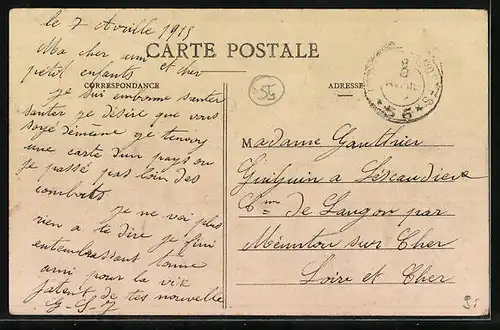 le 7 Avrille 1915
Ma cher ami
et cher
petit enfants
CARTE POSTALE
CORRESPONDANCE
ADRESSE
je sui embonne santer
santer je désire que vous
soye de meme je tenvoy
une carte d'un pays ou
je passé pas loin des
combats
je ne voi plus
rien a te dire je fini
entembrassant tonne
ami pour la vie
jatent de tes nouvelle
G-S-7
Madame Gauthier
à Lescaudier
Cne de Langon par
Mennetou sur Cher
Loire et Cher